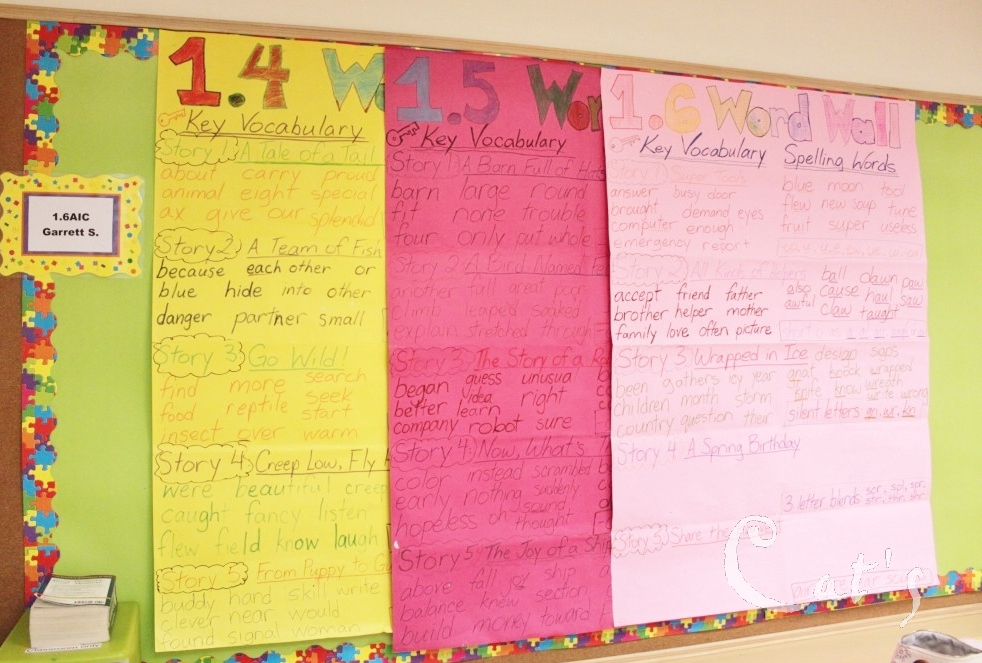 1.6AIC
Garrett S.
1.4 W
Key Vocabulary
Story 1 A Tale of a Tail
about carry proud
animal eight special
ax give our splendid
Story 2 A Team of Fish
because each other or
blue hide into other
danger partner small
Story 3 Go Wild!
find more search
food reptile seek
insect over warm start
Story 4 Creep Low, Fly
were beautiful creep
caught fancy listen
flew field know laugh
Story 5 From Puppy to Gu
buddy hard skill write
clever near would
found signal woman
1.5 Wor
Key Vocabulary
Story 1 A Barn Full of Hats
barn large round
fit none trouble
four only put whole
Story 2 A Bird Named
another full great poor
climb soaked
through
Story 3 The Story of a
began guess unusual
better idea right
company learn robot sure
Story 4 Now, What's
color instead scrambled
early nothing suddenly
hopeless oh sound thought
Story 5 The Joy of a Ship
above fall of ship
balance knew section
build money toward
1.6 Word Wall
Key Vocabulary
Story 1
answer busy door
brought demand eyes
computer enough
emergency report
Story 2 All Kinds of Helpers
accept friend father
brother helper mother
family love often picture
Story 3 Wrapped in Ice
been gathers icy year
children month storm
country question their
Story 4 A Spring Birthday
Story 5 Share the
Spelling Words
blue moon tool
flew new soup tune
fruit super useless
ball dawn paw
also cause haul saw
awful claw taught
design signs
gnat knock wrapped
knife know wreath
write wrong
silent letters gn, wr, kn
3 letter blends scr, spl, spr,
str, thr, shr
Cat's